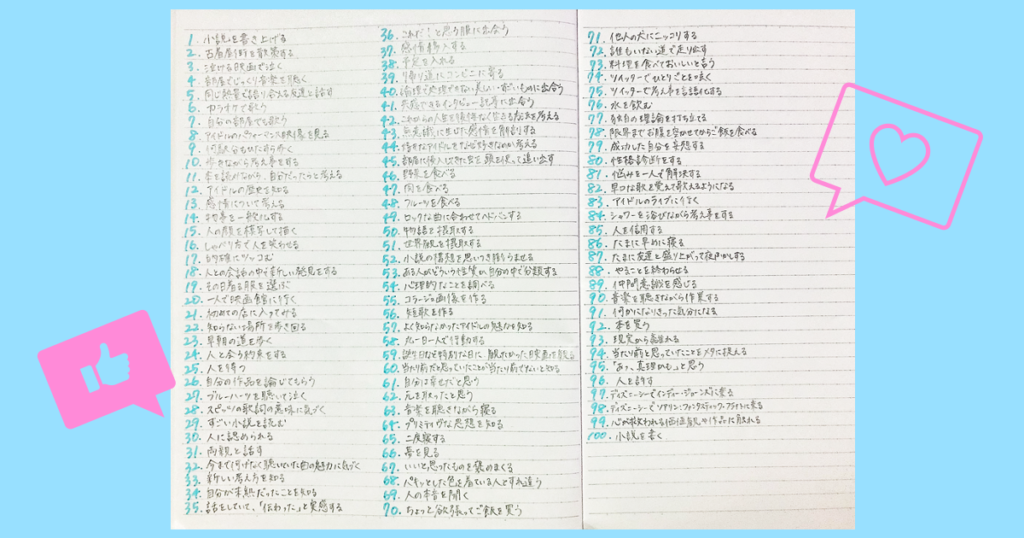 1. 小説を書き上げる
2. 古着屋街を散策する
3. 泣ける映画で泣く
4. 部屋でじっくり音楽を聴く
5. 同じ熱量で語り合える友達と話す
6. カラオケで歌う
7. 自分の部屋でも歌う
8. アイドルのパフォーマンス映像を見る
9. 何駅分もひたすら歩く
10. 歩きながら考え事をする
11. 本を読みながら、自分だったらと考える
12. アイドルの歴史を知る
13. 感情について考える
14. 物事を一般化する
15. 人の服を模写して描く
16. しゃべり方で人を笑わせる
17. 的確にツッコむ
18. 人との会話の中で新しい発見をする
19. その日着る服を選ぶ
20. 一人で映画館に行く
21. 初めての店に入ってみる
22. 知らない場所を歩き回る
23. 早朝の道を歩く
24. 人と会う約束をする
25. 人を待つ
26. 自分の作品を論じてもらう
27. ブルーハーツを聴いて泣く
28. スピッツの歌詞の意味に気づく
29. すごい小説を読む
30. 人に認められる
31. 両親と話す
32. 今まで何気なく聴いていた曲の魅力に気づく
33. 新しい考え方を知る
34. 自分が未熟だったことを知る
35. 話をしていて、「伝わった」と実感する
36. これだ!と思う服に出会う
37. 感情移入する
38. 予定を入れる
39. 帰り道にコンビニに寄る
40. 論理で処理できない美しい・すごいものに出会う
41. 共感できるインタビュー記事に出会う
42. これからの人生を後悔なく生きる方法を考える
43. 無意識に生じた感情を解釈する
44. 好きなアイドルをなぜ好きなのか考える
45. 部屋に侵入してきた虫を頭を使って追い出す
46. 野菜を食べる
47. 肉を食べる
48. フルーツを食べる
49. ロックな曲に合わせてヘドバンする
50. 物語を摂取する
51. 世界観を摂取する
52. 小説の構想を思いつき膨らませる
53. ある人がどういう性質か、自分の中で分類する
54. 心理的なことを調べる
55. コラージュ画像を作る
56. 短歌を作る
57. よく知らなかったアイドルの魅力を知る
58. 丸一日一人で行動する
59. 誕生日など特別な日に、
60. 当たり前だと思っていたことが当たり前でないと分かる
61. 自分は幸せだと思う
62. 元を取ったと思う
63. 音楽を聴きながら寝る
64. プリミティヴな思想を知る
65. 二度寝する
66. 夢を見る
67. いいと思ったものを褒めまくる
68. パキッとした色を着ている人とすれ違う
69. 人の本音を聞く
70. ちょっと欲張ってご飯を買う
71. 他人の犬にニッコリする
72. 誰もいない道で走り出す
73. 料理を食べておいしいと言う
74. ツイッターでひとりごとを呟く
75. ツイッターで考え事を言語化する
76. 水を飲む
77. 独自の理論を打ち立てる
78. 限界までお腹を空かせてからご飯を食べる
79. 成功した自分を妄想する
80. 性格診断をする
81. 悩みを一人で解決する
82. 早口な歌を覚えて歌えるようになる
83. アイドルのライブに行く
84. シャワーを浴びながら考え事をする
85. 人を信用する
86. たまに早めに寝る
87. たまに友達と盛り上がって夜ふかしする
88. やることを終わらせる
89. 仲間意識を感じる
90. 音楽を聴きながら作業する
91. 何かになりきった気分になる
92. 本を買う
93. 現実から離れる
94. 当たり前と思っていたことをメタに捉える
95. 「あっ、真理かも」と思う
96. 人を許す
97. ディズニーシーでインディ・ジョーンズに乗る
98. ディズニーシーでソアリン:ファンタスティック・フライトに乗る
99. 心が救われる価値観や作品に触れる
100. 小説を書く